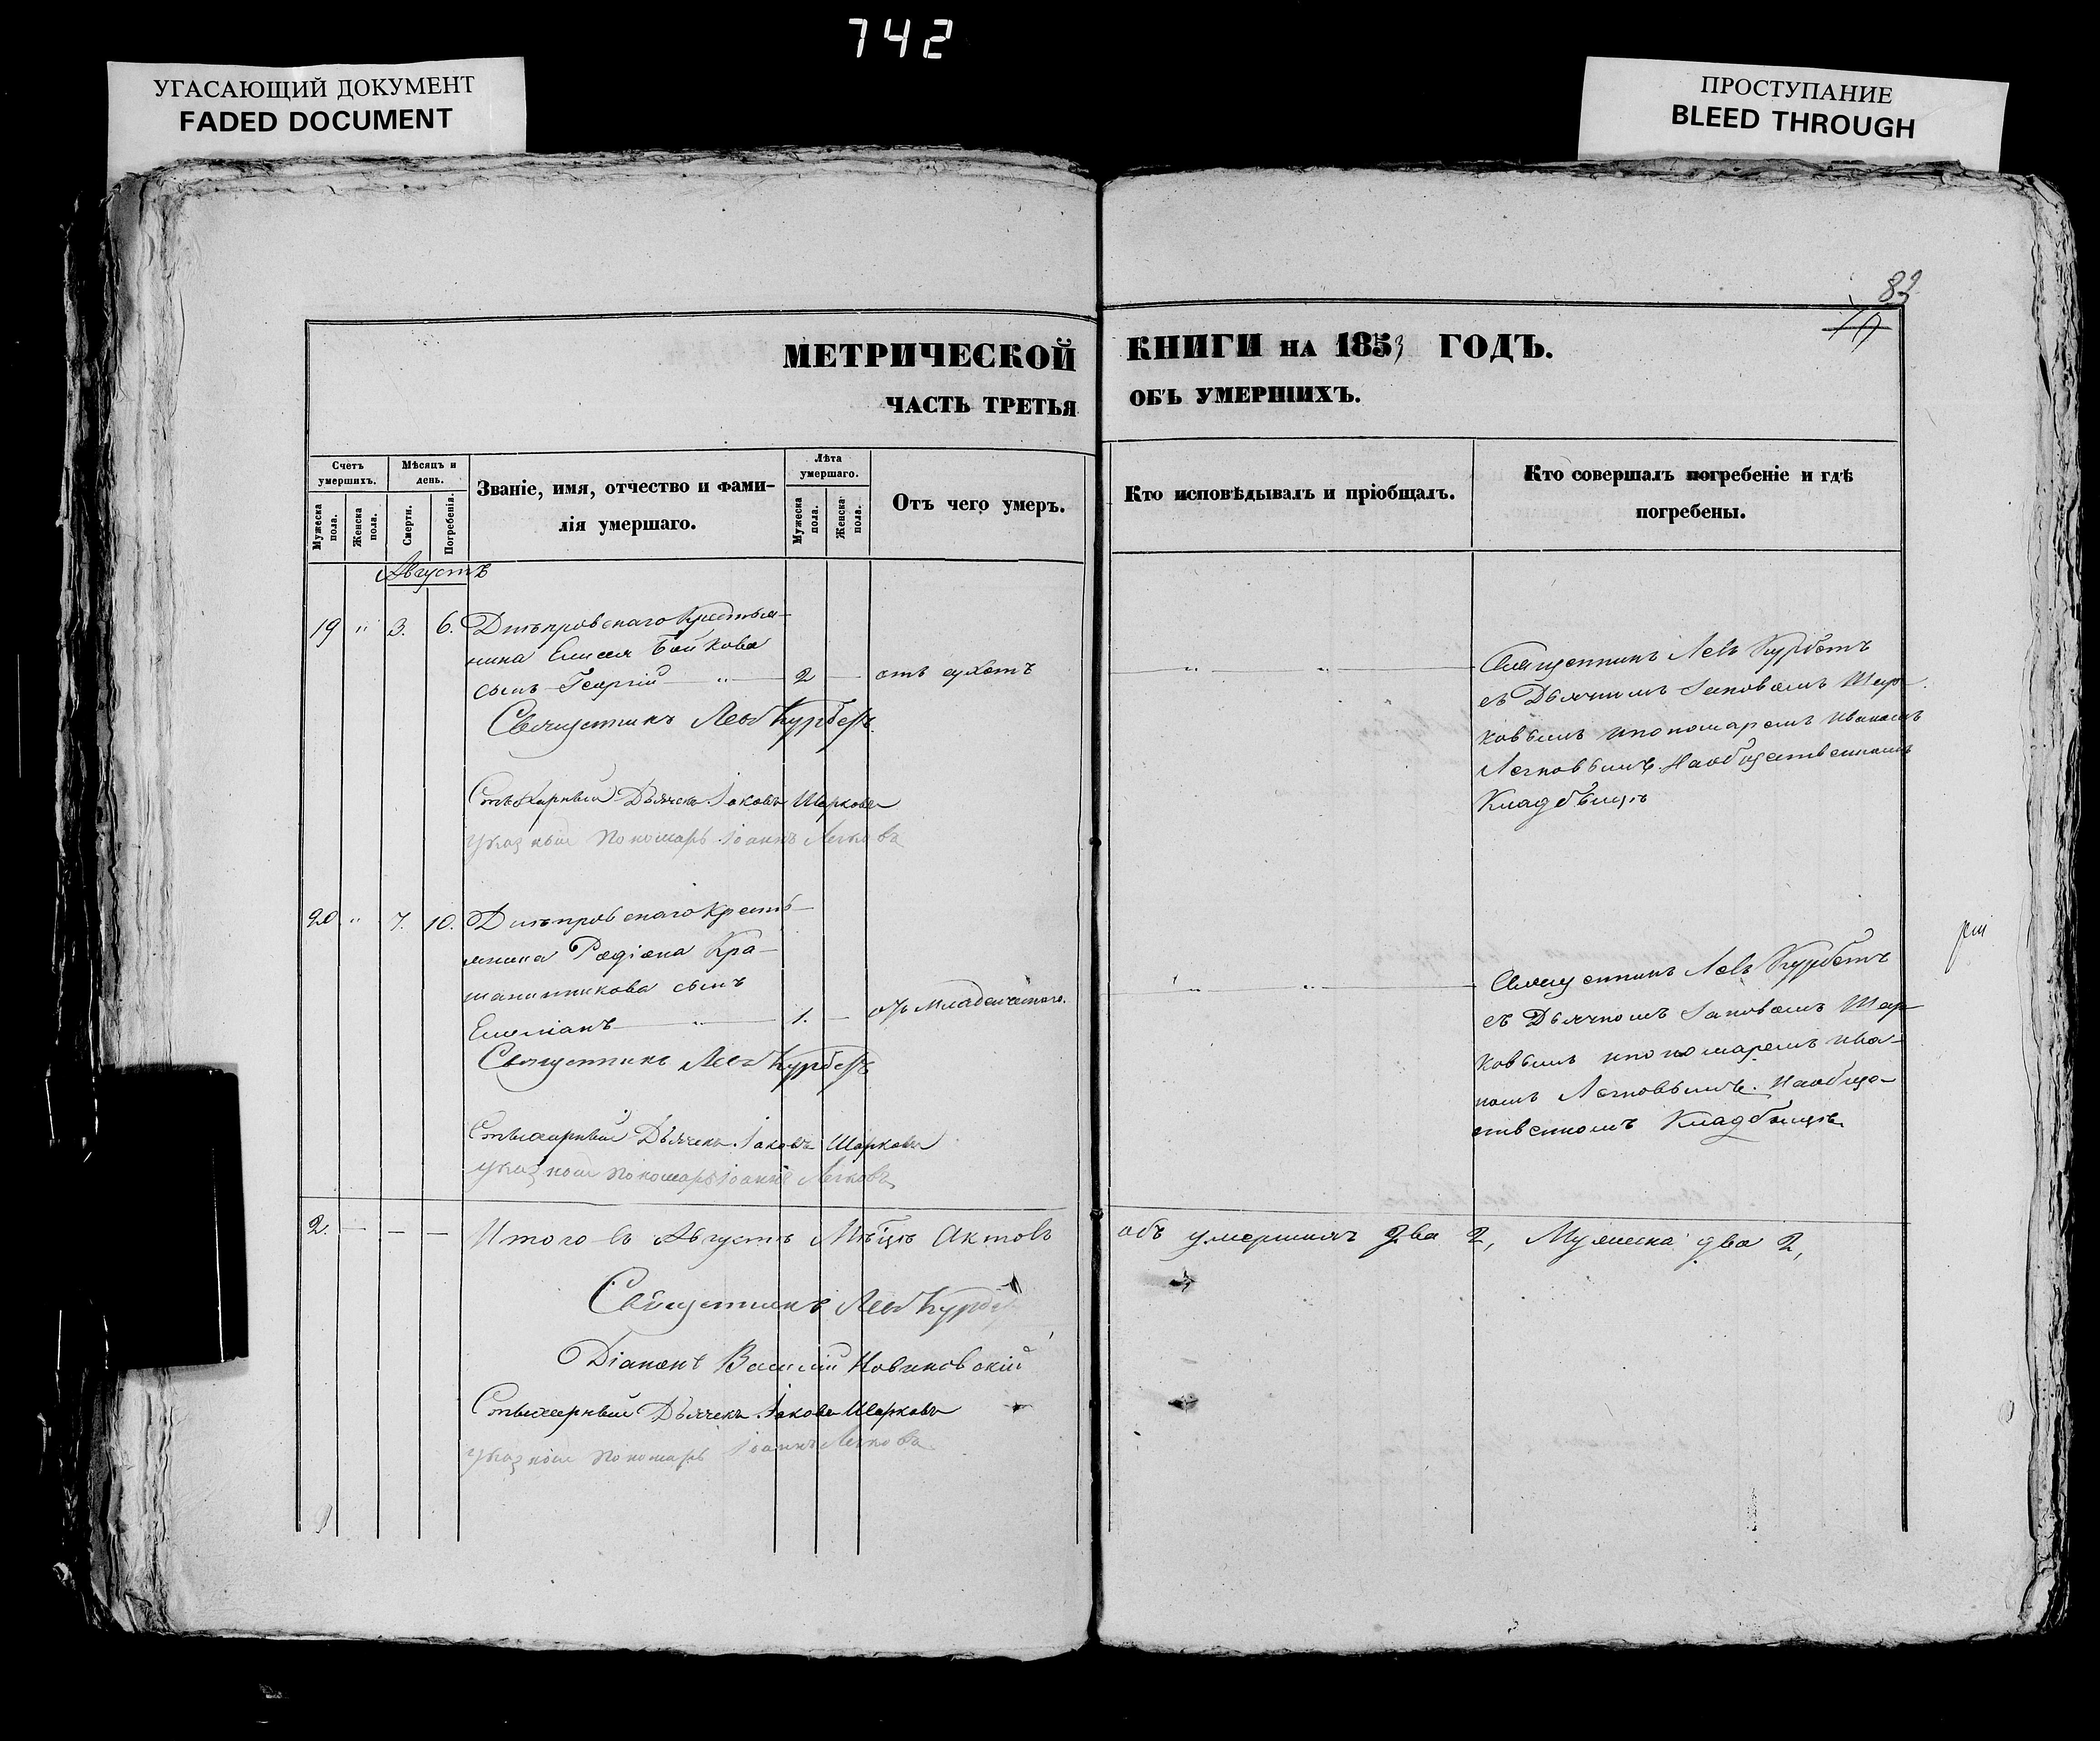 742
УГАСАЮЩИЙ ДОКУМЕНТ
FADED DOCUMENT
ПРОСТУПАНИЕ
BLEED THROUGH
МЕТРИЧЕСКОЙ КНИГИ НА 1853 ГОДЪ.
ЧАСТЬ ТРЕТЬЯ ОБЪ УМЕРШИХЪ.
Счетъ умершихъ.
Мужеска пола.
Женска пола.
Мѣсяцъ и день.
Смерти.
Погребенія.
Званіе, имя, отчество и фами-
лія умершаго.
Лѣта умершаго.
Мужеска пола.
Женска пола.
Отъ чего умеръ.
Кто исповѣдывалъ и пріобщалъ.
Кто совершалъ погребеніе и гдѣ
погребены.
Августъ
19 " 3. 6. Днѣпровскаго Крестья-
нина Елисея Бойкова
сынъ Георгій " 2 — отъ сухотъ
Священникъ Левъ Курбетъ
Стихарный Дьячекъ Іаковъ Шарковъ
Указный Пономарь Іоаннъ Легковъ
Священникъ Левъ Курбетъ
съ Дьячкомъ Іаковомъ Шар-
ковымъ и пономаремъ Иваномъ
Легковымъ. На общественномъ
Кладбищѣ
20 " 7. 10. Днѣпровскаго Кресть-
янина Родіона Кра-
сынъ
" 1. — отъ младенческаго.
Священникъ Левъ Курбетъ
Стихарный Дьячекъ Іаковъ Шарковъ
Указный Пономарь Іоаннъ Легковъ
Священникъ Левъ Курбетъ
съ Дьячкомъ Іаковомъ Шар-
ковымъ и пономаремъ Ива-
номъ Легковымъ. На обще-
ственномъ Кладбищѣ
2. — — — Итого въ Августѣ Мѣцѣ Актовъ объ умершихъ два 2, Мужеска два 2,
Священникъ Левъ Курбетъ
Діаконъ Василій Новиковскій
Стихарный Дьячекъ Іаковъ Шарковъ
Указный Пономарь Іоаннъ Легковъ